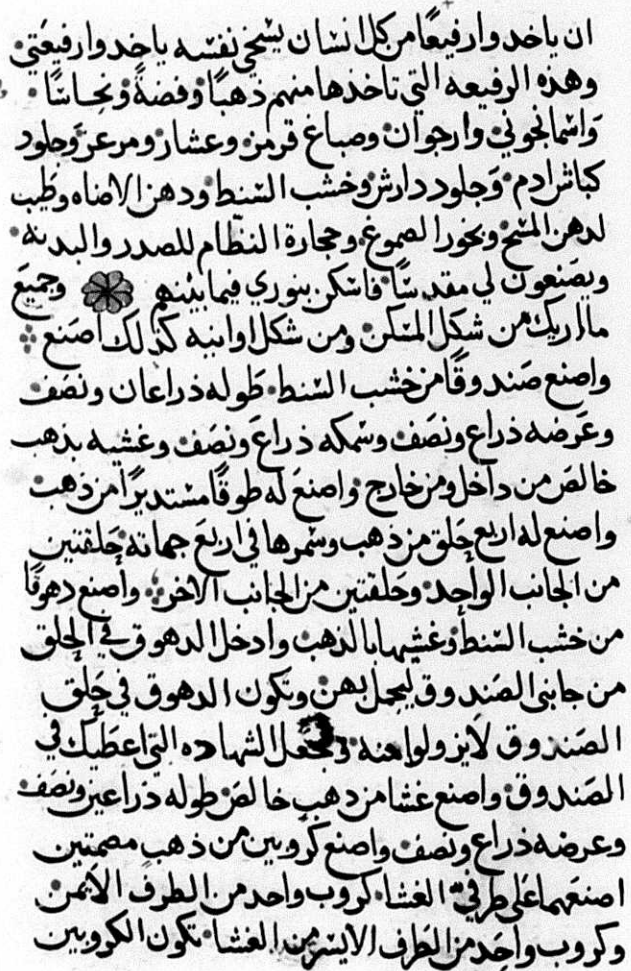 ان ياخدوا رفيعًا من كل انسان يسخي نفسه ياخدوا رفيعتي
وهذه الرفيعه التي تاخدها منهم ذهبًا وفضةً ونحاسًا
واسمانجوني وارجوان وصباغ قرمز وعشار ومرعز وجلود
كباش ادم وجلود دارش وخشب السنط ودهن الاضاه وطيب
لدهن المسح وبخور الصموغ وحجارة النظام للصدر والبدنه
ويصنعون لي مقدسًا فاسكن بنوري فيما بينهم وجميع
ما اريك من شكل المسكن ومن شكل اوانيه كذلك اصنع
واصنع صندوقًا من خشب السنط طوله ذراعان ونصف
وعرضه ذراع ونصف وسمكه ذراع ونصف وغشيه بذهب
خالص من داخل ومن خارج واصنع له طوقًا مستديرًا من ذهب
واصنع له اربع حلق من ذهب وسمرها في اربع جهاته حلقتين
من الجانب الواحد وحلقتين من الجانب الاخر واصنع دهوقًا
من خشب السنط وغشيها بالذهب وادخل الدهوق في الحلق
من جانبي الصندوق ليحمل بهن وتكون الدهوق في حلق
الصندوق لا يزولوا منه الشهاده التي اعطيك في
الصندوق واصنع غشا من ذهب خالص طوله ذراعين ونصف
وعرضه ذراع ونصف واصنع كروبين من ذهب مصمتين
اصنعهما على طرفي الغشا كروب واحد من الطرف الايمن
وكروب واحد من الطرف الايسر من الغشا تكون الكروبين